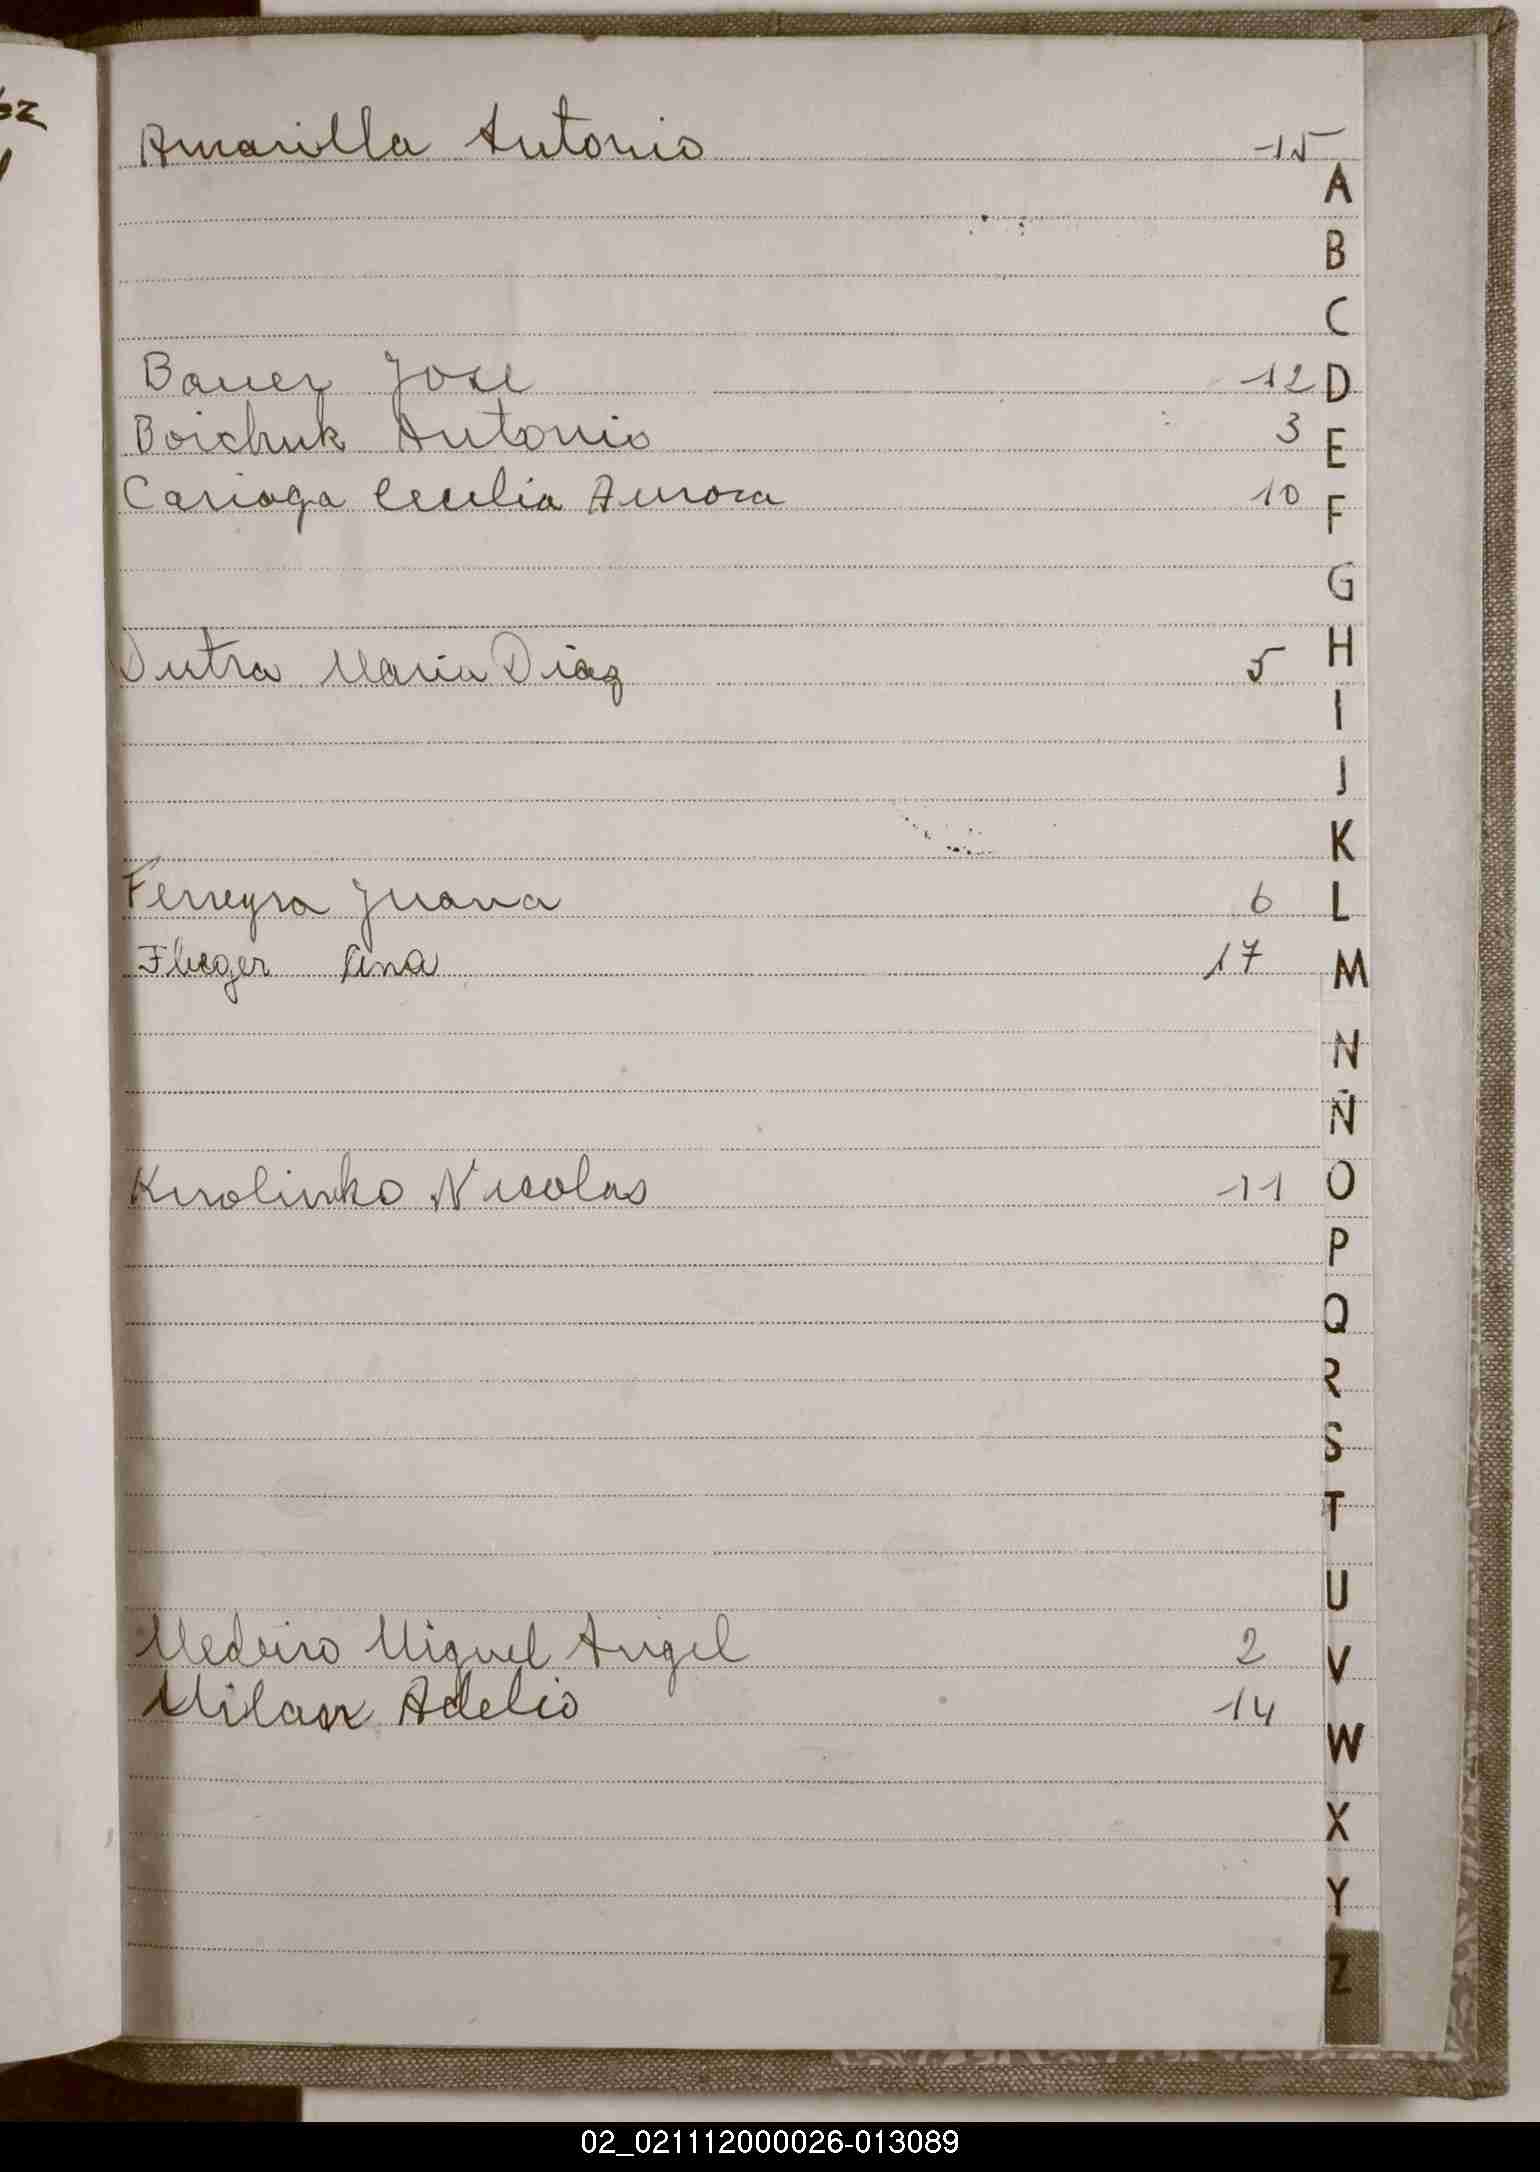 Amarilla Antonio 15
A
B
C
Bauer José 12
D
Boichuk Antonio 3
E
Cariaga Cecilia Aurora 10
F
G
H
Dutra Maria Diaz 5
I
J
K
Ferreyra Juana 6
L
Flieger Lina 17
M
N
Ñ
O
Kurolinko Nicolas 11
P
Q
R
S
T
U
Medeiro Miguel Angel 2
V
Milan Adelio 14
W
X
Y
Z
02_021112000026-013089